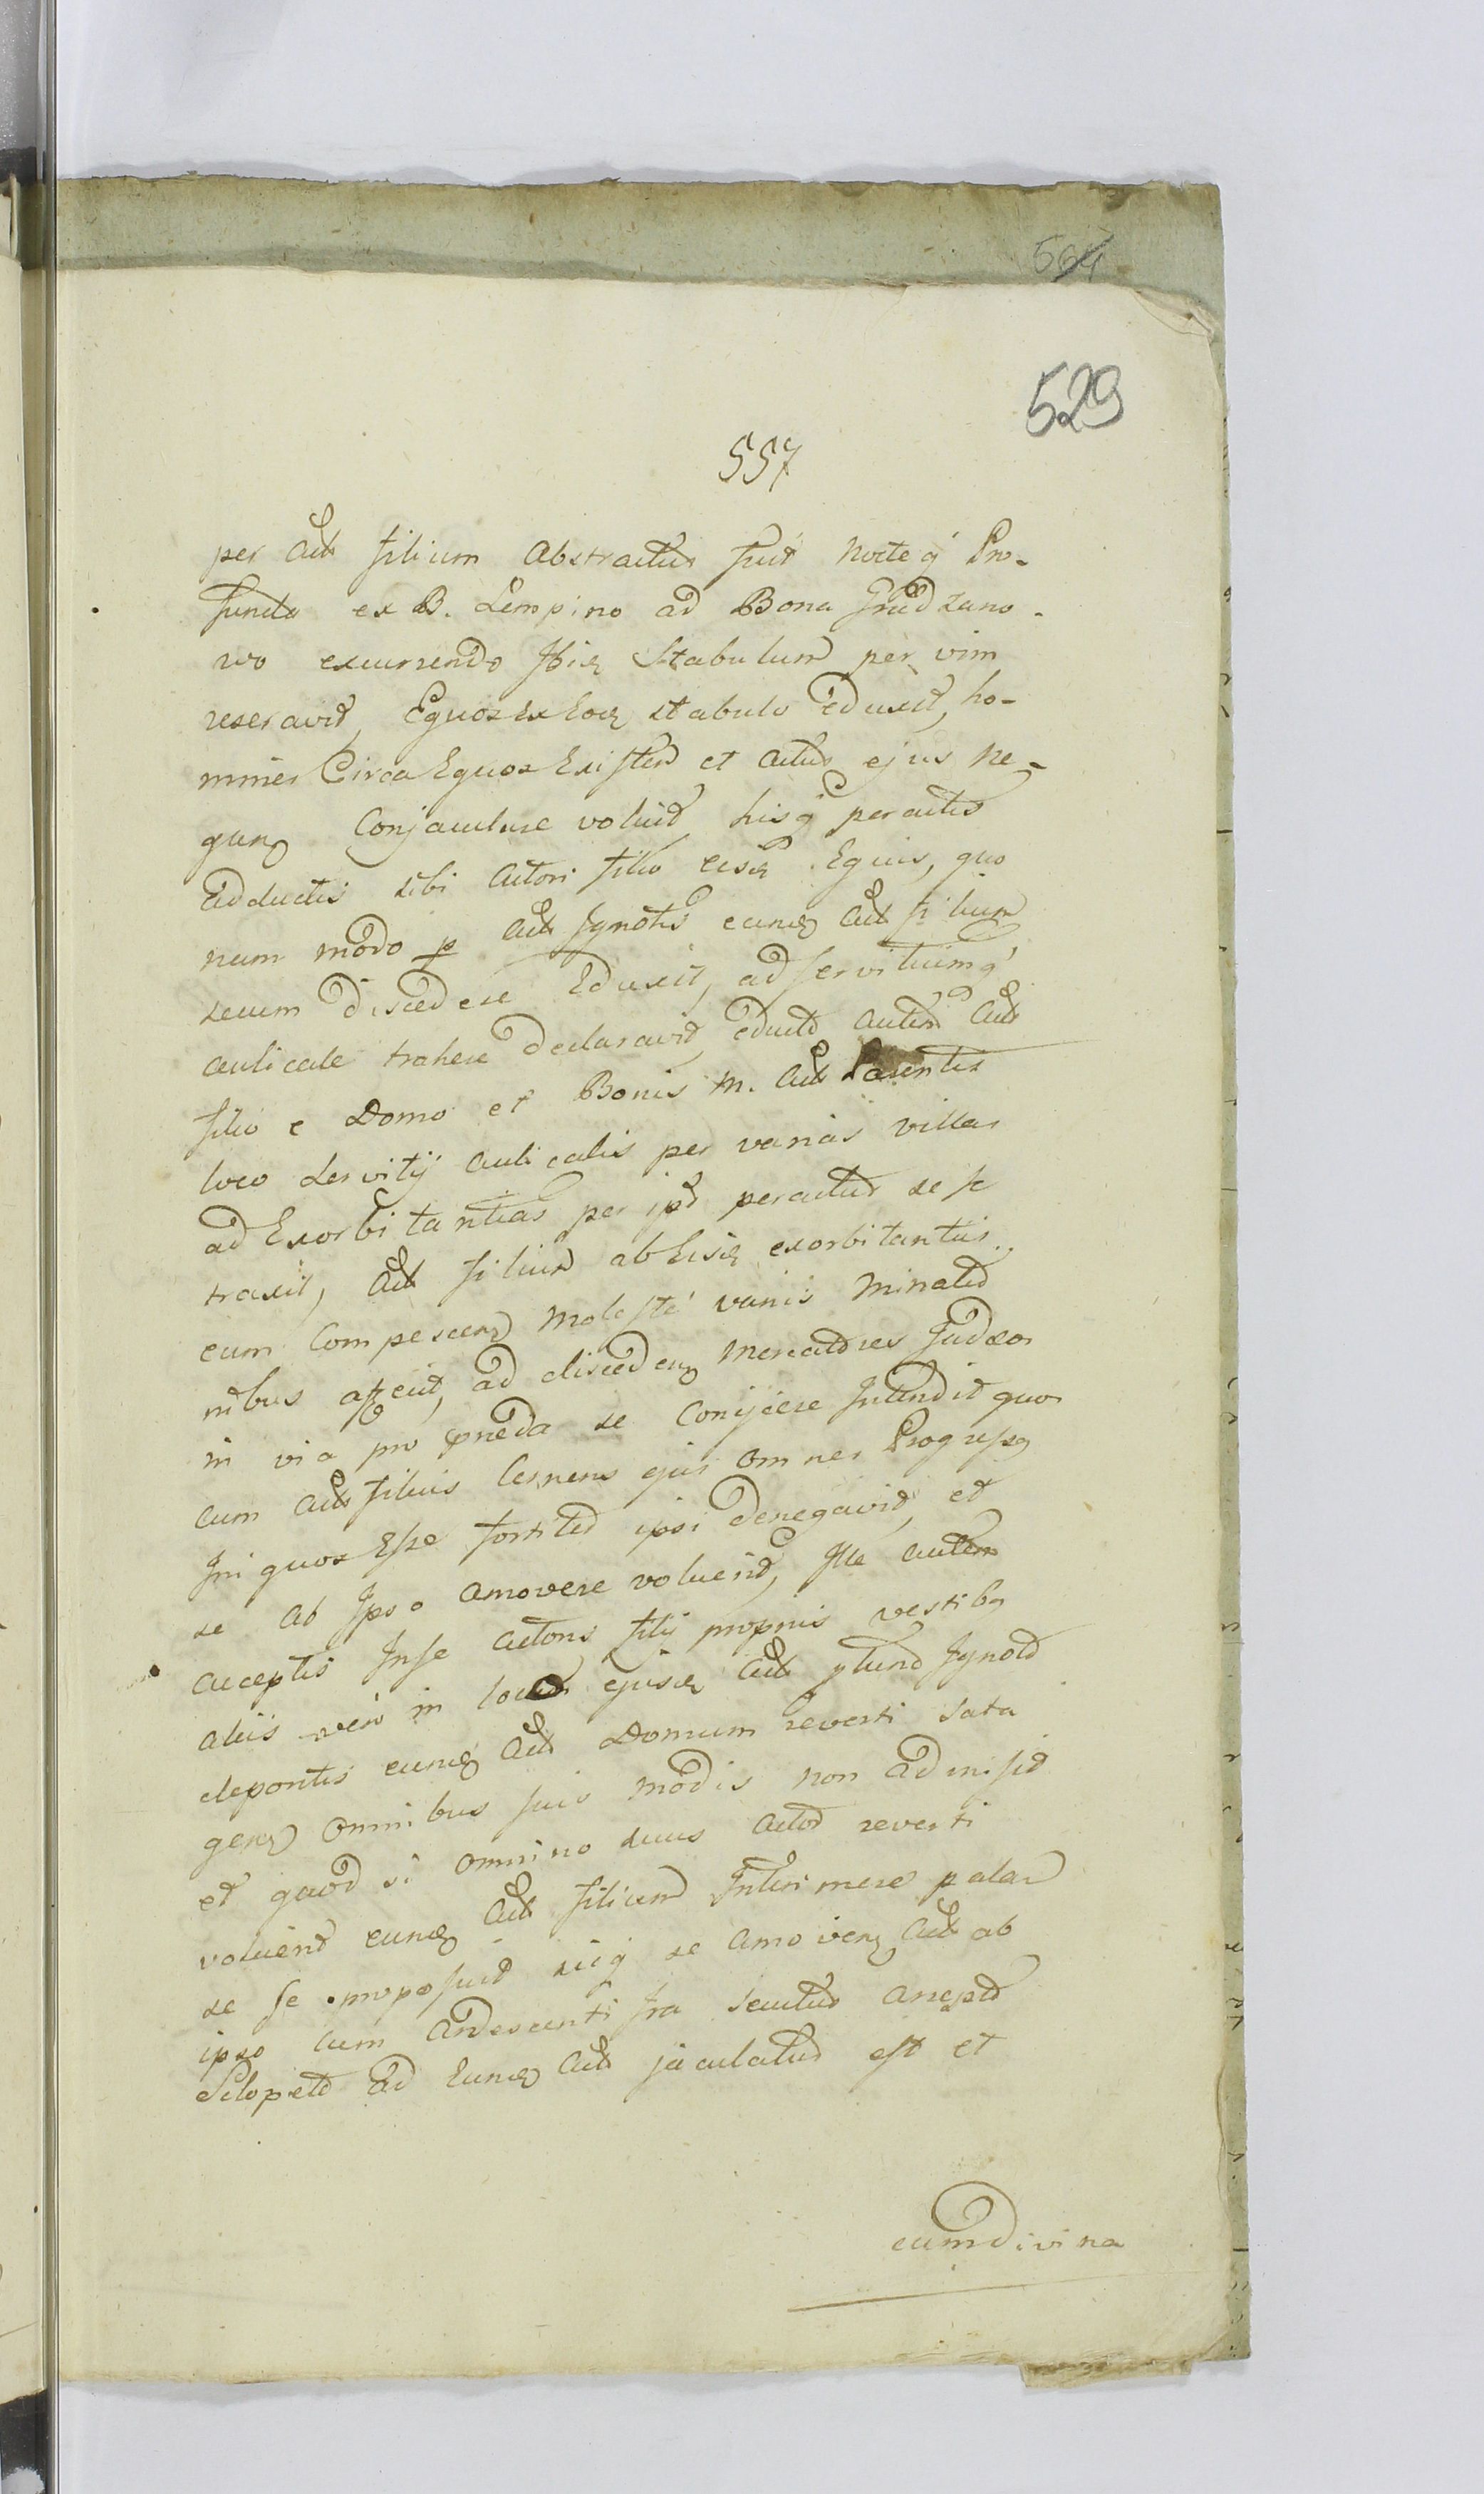 564
529
557
per Act filium Abstractus fuit nocte q Pro-
funda ex B. Lempino ad Bona Grudzano-
wo excurrendo Ibiq Stabulum per vim
reseravit, Equos ex Eoq stabulo eduxit, ho-
mines Circa Equos Existen et actus ejus ne-
gan Conjaculare voluit, hisq peractis
adductis sibi Actori filio eisq Equis, quo
nam modo p Act Ignotis eunq Act filium
secum discedere Eduxit, ad servitiumq
aulicale trahere declaravit, educto autem Act
filio e Domo et Bonis M. Act Parentis
loco servitij aulicalis per varias villas
ad Exorbitantias per ips peractas se se
traxit, Act filium ab Eisq exorbitantiis
eum Compescen moleste variis minatio
nibus affecit, ad discedenq Mercatores Judæos
in via pro præda se Conijcere Intendit quos
cum Act filius Cernens ejus omnes Progressq
Iniquos Esse fortiter ipsi denegavit, et
se ab Ipso amovere voluerit, Ille autem
acceptis In se Actoris filij proprijs vestibq
aliis vero in locum ejusq Act Ignot
depositis eunq Act Domum reverti sata
gen omnibus suis modis non admisit
et quod si omnino suus Actor reverti
voluerit eunq Act filium Interimere palam
se se proposuit sicq se amoven Act ab
ipso cum Ardescenti Ira secutus arrepto
Sclopeto ad Eunq Act jaculatus est et
cum divina